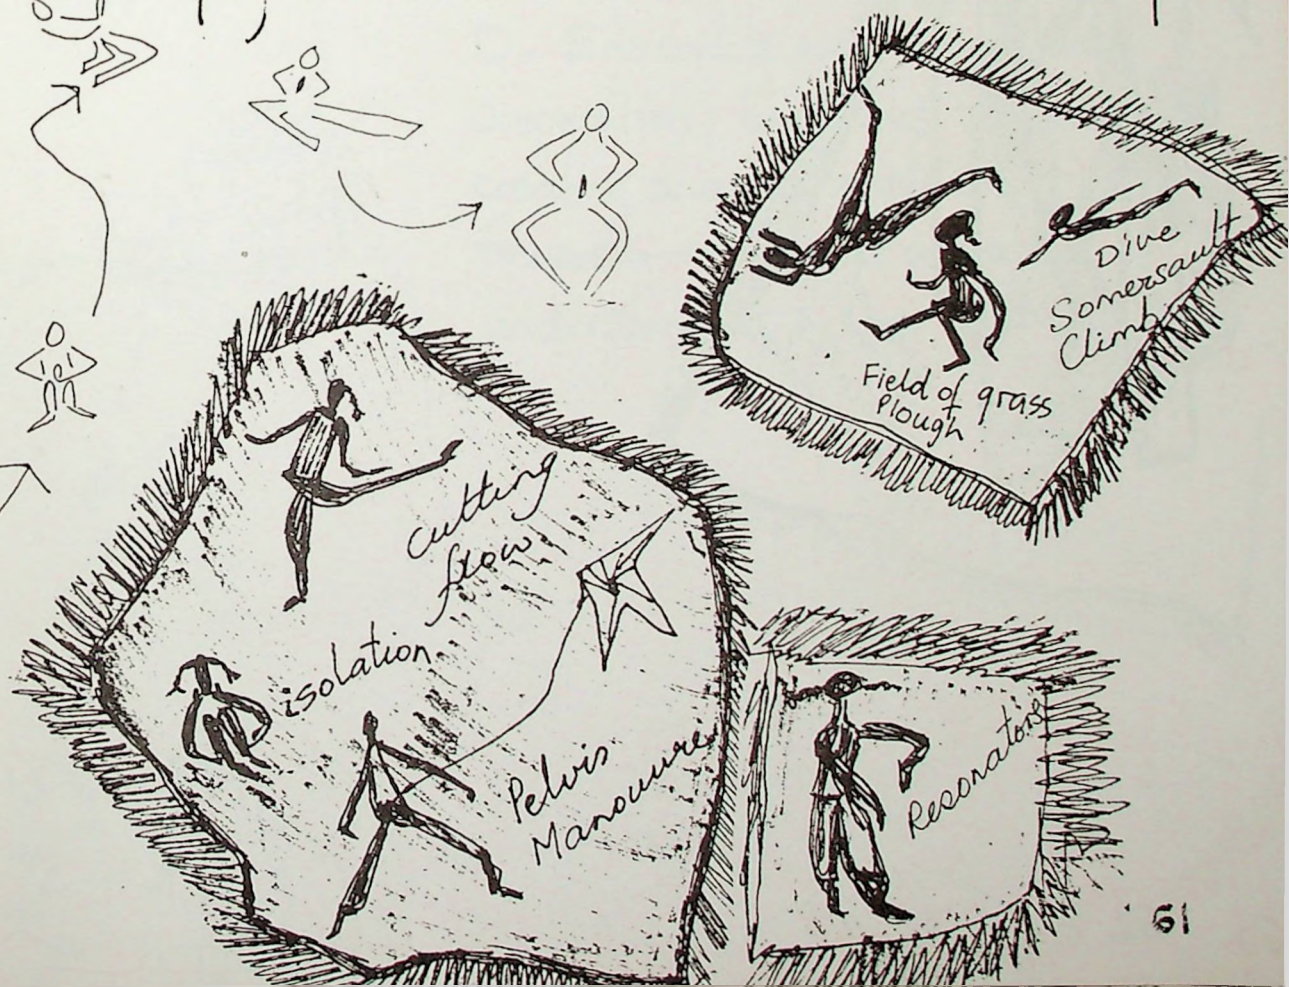 Dive
Somersault
Climb
Field of grass
Plough
cutting
flow
isolation
Pelvis
Manouvre
Resonators
61